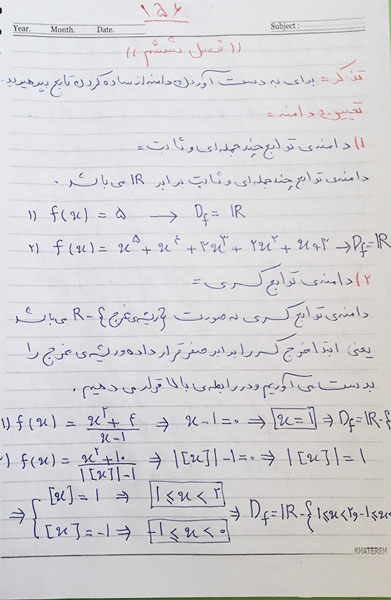 ۱۵۶
Year. Month. Date. Subject :
(( فصل ششم ))
تذکر = برای به دست آوردن دامنه از ساده کردن تابع بپرهیزید.
تعیین دامنه =
۱) دامنه ی توابع چند جمله ای و ثابت =
دامنه ی توابع چند جمله ای و ثابت برابر IR می باشد.
۱) f(x) = ۵ → Df = IR
۲) f(x) = x⁵ + x⁴ + ۳x³ + ۲x² + x + ۳ → Df = IR
۲) دامنه ی توابع کسری =
دامنه ی توابع کسری به صورت {ریشه ی مخرج} - R می باشد
یعنی ابتدا مخرج کسر را برابر صفر قرار داده و ریشه ی مخرج را
بدست می آوریم و در رابطه ی بالا قرار می دهیم.
۱) f(x) = (x² + ۴)/(x-۱) ⇒ x-۱=۰ ⇒ x=۱ ⇒ Df = IR - {
۲) f(x) = (x² + ۱۰)/(|[x]|-۱) ⇒ |[x]|-۱=۰ ⇒ |[x]| = ۱
⇒ { [x] = ۱ ⇒ ۱ ≤ x < ۲ ⇒ Df = IR - { ۱ ≤ x < ۲ و -۱ ≤ x < ۰
[x] = -۱ ⇒ -۱ ≤ x < ۰
KHATEREH